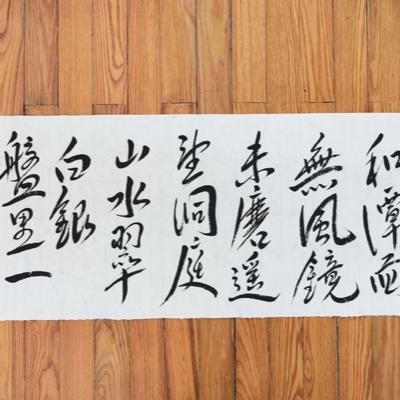 和潭面
無風鏡
未磨遙
望洞庭
山水翠
白銀
盤里一